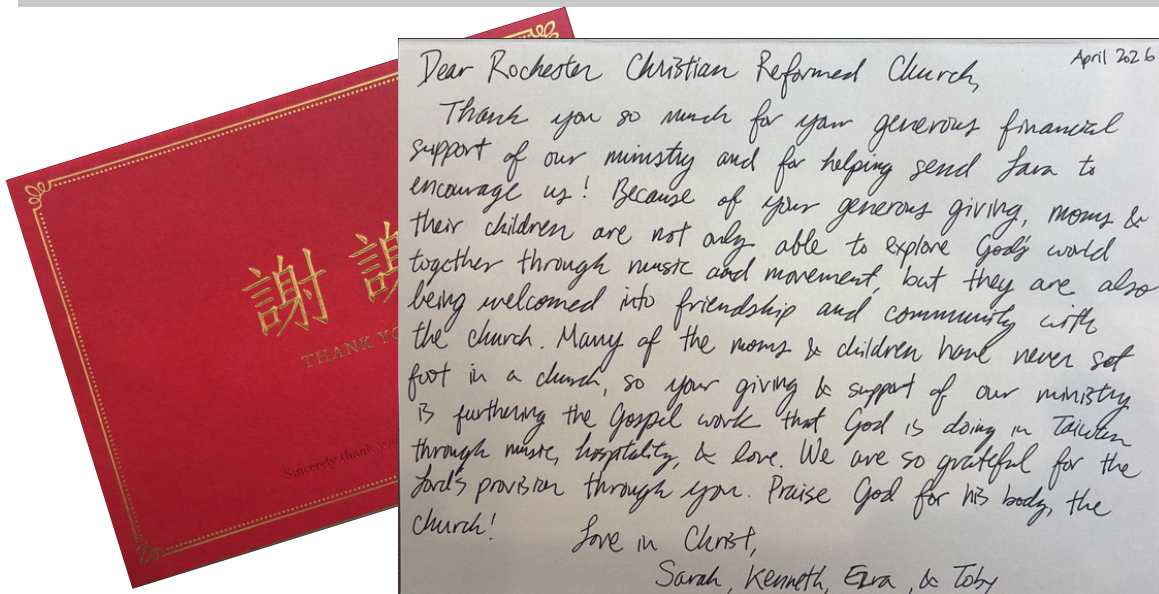 謝
THANK YO
Sincerely thank you
April 2026
Dear Rochester Christian Reformed Church,
Thank you so much for your generous financial
support of our ministry and for helping send Lara to
encourage us! Because of your generous giving, moms &
their children are not only able to explore God's world
together through music and movement, but they are also
being welcomed into friendship and community with
the church. Many of the moms & children have never set
foot in a church, so your giving & support of our ministry
is furthering the Gospel work that God is doing in Taiwan
through music, hospitality, & love. We are so grateful for the
Lord's provision through you. Praise God for his body, the
church!
Love in Christ,
Sarah, Kenneth, Ezra, & Toby